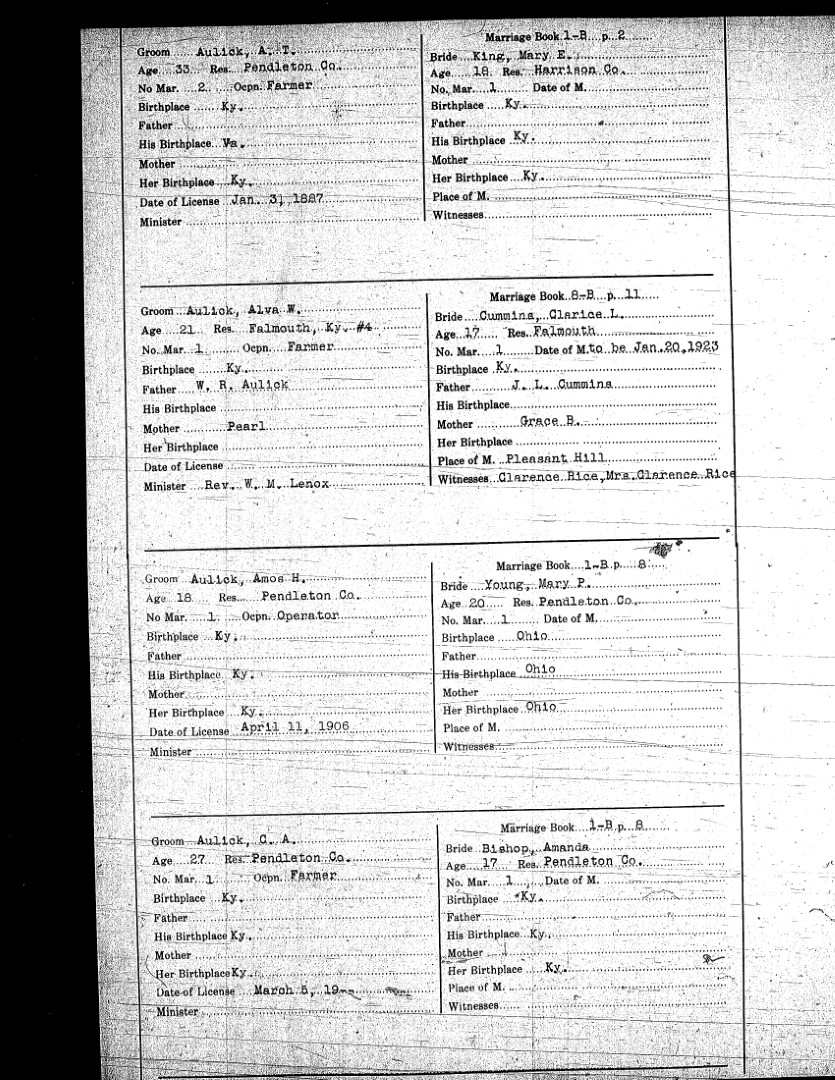 Groom Aulick, A. T.
Age 33 Res. Pendleton Co.
No Mar. 2. Ocpn. Farmer
Birthplace Ky.
Father
His Birthplace Va.
Mother
Her Birthplace Ky.
Date of License Jan. 31, 1887
Minister
Marriage Book 1-B p. 2
Bride King, Mary E.
Age 18 Res. Harrison Co.
No. Mar. 1 Date of M.
Birthplace Ky.
Father
His Birthplace Ky.
Mother
Her Birthplace Ky.
Place of M.
Witnesses
Groom Aulick, Alva W.
Age 21 Res. Falmouth, Ky. #4
No. Mar. 1 Ocpn. Farmer
Birthplace Ky.
Father W. R. Aulick
His Birthplace
Mother Pearl
Her Birthplace
Date of License
Minister Rev. W. M. Lenox
Marriage Book 8-B p. 11
Bride Cummins, Clarice L.
Age 17 Res. Falmouth
No. Mar. 1 Date of M. to be Jan. 20, 1923
Birthplace Ky.
Father J. L. Cummins
His Birthplace
Mother Grace B.
Her Birthplace
Place of M. Pleasant Hill
Witnesses Clarence Rice, Mrs. Clarence Rice
Groom Aulick, Amos H.
Age 18 Res. Pendleton Co.
No Mar. 1 Ocpn. Operator
Birthplace Ky.
Father
His Birthplace Ky.
Mother
Her Birthplace Ky.
Date of License April 11, 1906
Minister
Marriage Book 1-B p. 8
Bride Young, Mary P.
Age 20 Res. Pendleton Co.
No. Mar. 1 Date of M.
Birthplace Ohio
Father
His Birthplace Ohio
Mother
Her Birthplace Ohio
Place of M.
Witnesses
Groom Aulick, C. A.
Age 27 Res. Pendleton Co.
No. Mar. 1 Ocpn. Farmer
Birthplace Ky.
Father
His Birthplace Ky.
Mother
Her Birthplace Ky.
Date of License March 5, 19
Minister
Marriage Book 1-B p. 8
Bride Bishop, Amanda
Age 17 Res. Pendleton Co.
No. Mar. 1 Date of M.
Birthplace Ky.
Father
His Birthplace Ky.
Mother
Her Birthplace Ky.
Place of M.
Witnesses